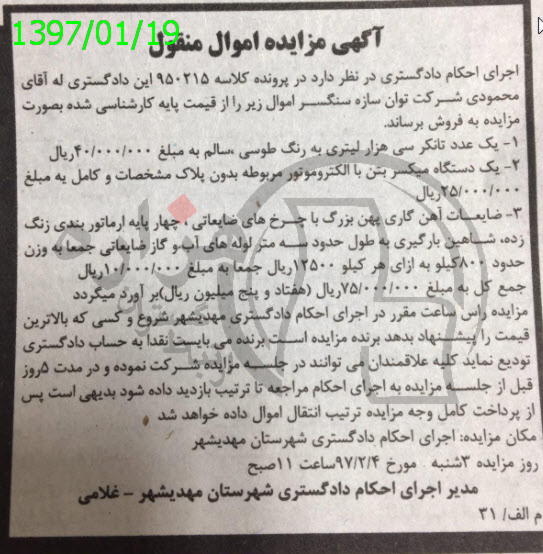 1397/01/19
آگهی مزایده اموال منقول
اجرای احکام دادگستری در نظر دارد در پرونده کلاسه ۹۵۰۲۱۵ این دادگستری له آقای
محمودی شرکت توان سازه سنگسر اموال زیر را از قیمت پایه کارشناسی شده بصورت
مزایده به فروش برساند.
۱- یک عدد تانکر سی هزار لیتری به رنگ طوسی ،سالم به مبلغ ۴۰/۰۰۰/۰۰۰ریال
۲- یک دستگاه میکسر بتن با الکتروموتور مربوطه بدون پلاک مشخصات و کامل به مبلغ
۲۵/۰۰۰/۰۰۰ریال
۳- ضایعات آهن گاری پهن بزرگ با چرخ های ضایعاتی ، چهار پایه ارماتور بندی زنگ
زده، شاهین بارگیری به طول حدود سه متر لوله های آب و گاز ضایعاتی جمعا به وزن
حدود ۸۰۰کیلو به ازای هر کیلو ۱۲۵۰۰ریال جمعا به مبلغ ۱۰/۰۰۰/۰۰۰ریال
جمع کل به مبلغ ۷۵/۰۰۰/۰۰۰ریال (هفتاد و پنج میلیون ریال)بر آورد میگردد
مزایده راس ساعت مقرر در اجرای احکام دادگستری مهدیشهر شروع و کسی که بالاترین
قیمت را پیشنهاد بدهد برنده مزایده است برنده می بایست نقدا به حساب دادگستری
تودیع نماید کلیه علاقمندان می توانند در جلسه مزایده شرکت نموده و در مدت ۵روز
قبل از جلسه مزایده به اجرای احکام مراجعه تا ترتیب بازدید داده شود بدیهی است پس
از پرداخت کامل وجه مزایده ترتیب انتقال اموال داده خواهد شد
مکان مزایده: اجرای احکام دادگستری شهرستان مهدیشهر
روز مزایده ۳شنبه مورخ ۹۷/۲/۴ساعت ۱۱صبح
مدیر اجرای احکام دادگستری شهرستان مهدیشهر - غلامی
م الف/ ۳۱